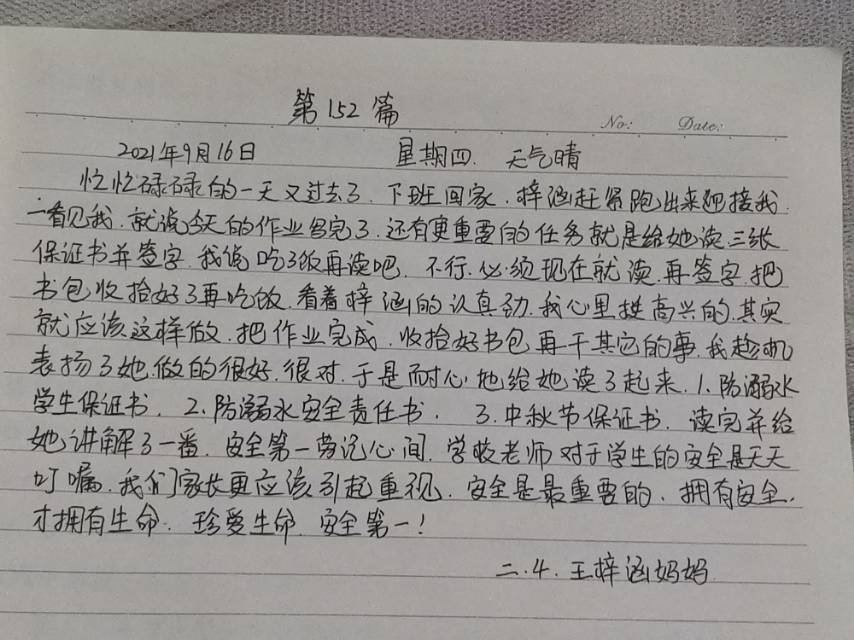 第152篇
No: Date:
2021年9月16日 星期四. 天气晴
忙忙碌碌的一天又过去了.下班回家.梓涵赶紧跑出来迎接我.
一看见我.就说今天的作业写完了.还有更重要的任务就是给她读三张
保证书并签字.我说吃了饭再读吧.不行.必须现在就读.再签字.把
书包收拾好了再吃饭.看着梓涵的认真劲.我心里挺高兴的.其实
就应该这样做.把作业完成.收拾好书包再干其它的事.我趁机
表扬了她.做的很好.很对.于是耐心地给她读了起来.1.防溺水
学生保证书. 2.防溺水安全责任书. 3.中秋节保证书. 读完并给
她讲解了一番.安全第一劳记心间.学校老师对于学生的安全是天天
叮嘱.我们家长更应该引起重视.安全是最重要的.拥有安全.
才拥有生命.珍爱生命.安全第一!
二.4.王梓涵妈妈.